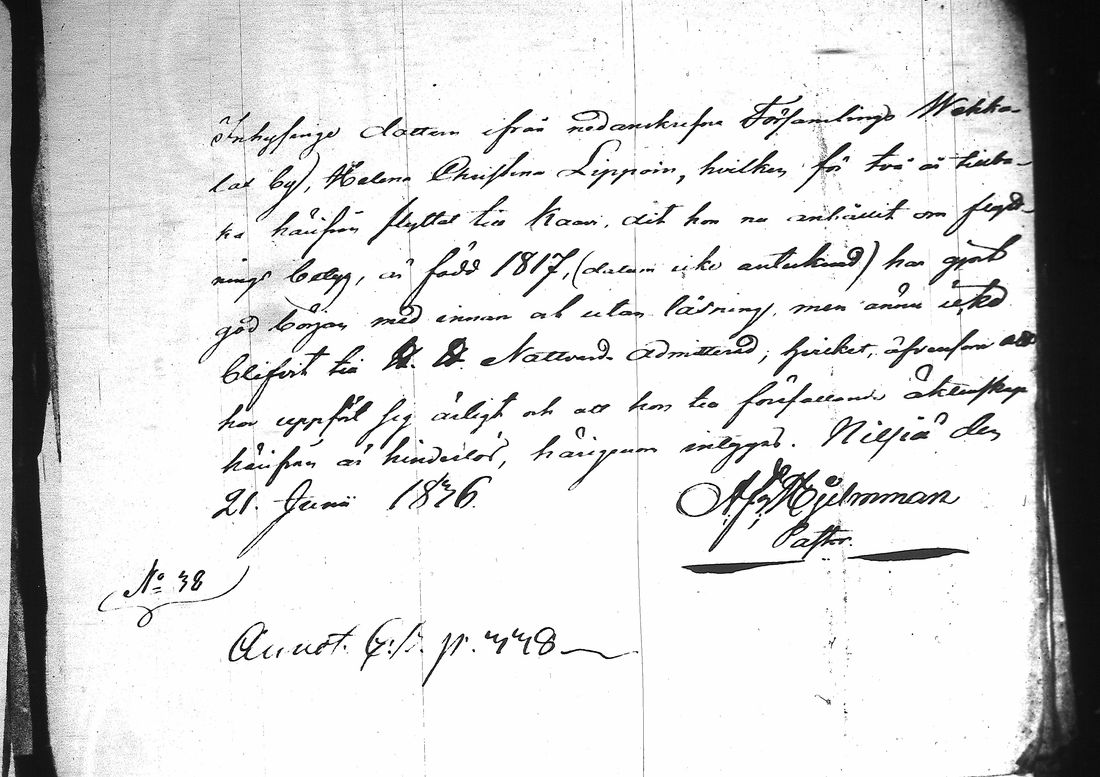 Inhysinge dottern ifrån nedanskrefne Församlings Wekka-
lax by, Helena Christina Lippoin, hvilken för två år tillba-
ka härifrån flyttat till Kaavi, dit hon nu anhållit om flytt-
nings betyg, är född 1817, (datum icke antecknad) har gjort
god början med innan och utan läsning, men ännu icke
blifvit till H. H. Nattvard admitterad; hvilket, äfvensom att
hon uppfört sig ärligt och att hon till förefallande äktenskap
härifrån är hinderlös, härigenom intygas. Nilsiä den
21. Junii 1836.
Hjelmman
Pastor.
No 38
Annot. p. 338